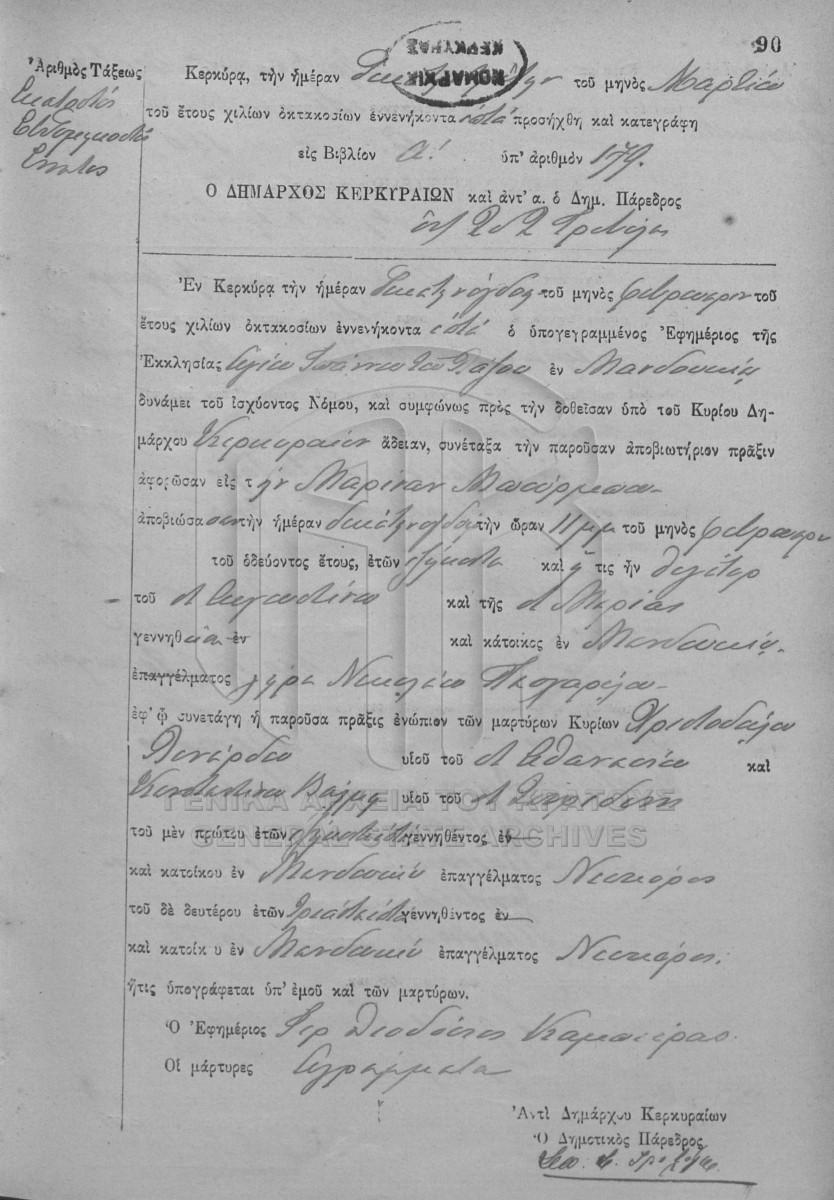 90
Ἀριθμὸς Τάξεως
Ἑκατοστός
Ἑβδομηκοστός
Ἔνατος
ΔΗΜΑΡΧΙΚ
ΚΕΡΚΥΡΑΣ
Κερκύρᾳ, τὴν ἡμέραν τοῦ μηνὸς Μαρτίου
τοῦ ἔτους χιλίων ὀκτακοσίων ἐννενήκοντα ἑπτά προσήχθη καὶ κατεγράφη
εἰς Βιβλίον Α! ὑπ' ἀριθμὸν 179.
Ο ΔΗΜΑΡΧΟΣ ΚΕΡΚΥΡΑΙΩΝ καὶ ἀντ' α. ὁ Δημ. Πάρεδρος
Ἐν Κερκύρᾳ τὴν ἡμέραν δεκάτην ὀγδόην τοῦ μηνὸς Φεβρουαρίου τοῦ
ἔτους χιλίων ὀκτακοσίων ἐννενήκοντα ἑπτά ὁ ὑπογεγραμμένος Ἐφημέριος τῆς
Ἐκκλησίας Ἁγίου Ἰωάννου τοῦ ἐν Μανδουκίῳ
δυνάμει τοῦ ἰσχύοντος Νόμου, καὶ συμφώνως πρὸς τὴν δοθεῖσαν ὑπὸ τοῦ Κυρίου Δη-
μάρχου Κερκυραίων ἄδειαν, συνέταξα τὴν παροῦσαν ἀποβιωτήριον πρᾶξιν
ἀφορῶσαν εἰς τὴν Μαρίναν
ἀποβιώσασαν τὴν ἡμέραν δεκάτην ὀγδόην τὴν ὥραν 11 μμ τοῦ μηνὸς Φεβρουαρίου
τοῦ ὁδεύοντος ἔτους, ἐτῶν ἑξήκοντα καὶ ἥτις ἦν θυγάτηρ
τοῦ Αὐγουστίνου καὶ τῆς Μαρίας
γεννηθεῖσα ἐν καὶ κάτοικος ἐν Μανδουκίῳ
ἐπαγγέλματος χήρα Νικολάου
ἐφ' ᾧ συνετάγη ἡ παροῦσα πρᾶξις ἐνώπιον τῶν μαρτύρων Κυρίων Χριστοδούλου
Λονάρδου υἱοῦ τοῦ Ἀθανασίου καὶ
Κωνσταντίνου Βάλμη υἱοῦ τοῦ Σπυρίδωνος
τοῦ μὲν πρώτου ἐτῶν γεννηθέντος ἐν
καὶ κατοίκου ἐν Μανδουκίῳ ἐπαγγέλματος Νεωκόρος
τοῦ δὲ δευτέρου ἐτῶν γεννηθέντος ἐν
καὶ κατοίκ υ ἐν Μανδουκίῳ ἐπαγγέλματος Νεωκόρος
ἥτις ὑπογράφεται ὑπ' ἐμοῦ καὶ τῶν μαρτύρων.
Ὁ Ἐφημέριος Ἱερ Θεοδόσιος
Οἱ μάρτυρες ἀγράμματοι
Ἀντὶ Δημάρχου Κερκυραίων
Ὁ Δημοτικὸς Πάρεδρος
ΓΕΝΙΚΑ ΑΡΧΕΙΑ ΤΟΥ ΚΡΑΤΟΥΣ
GENERAL STATE ARCHIVES